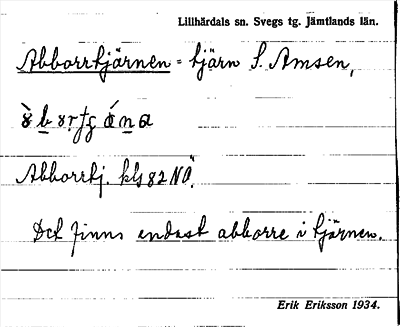 Lillhärdals sn. Svegs tg. Jämtlands län.
Abborrtjärnen = tjärn S. Amsen,
Abborrtj. kbl 82 NÖ.
Det finns endast abborre i tjärnen.
Erik Eriksson 1934.